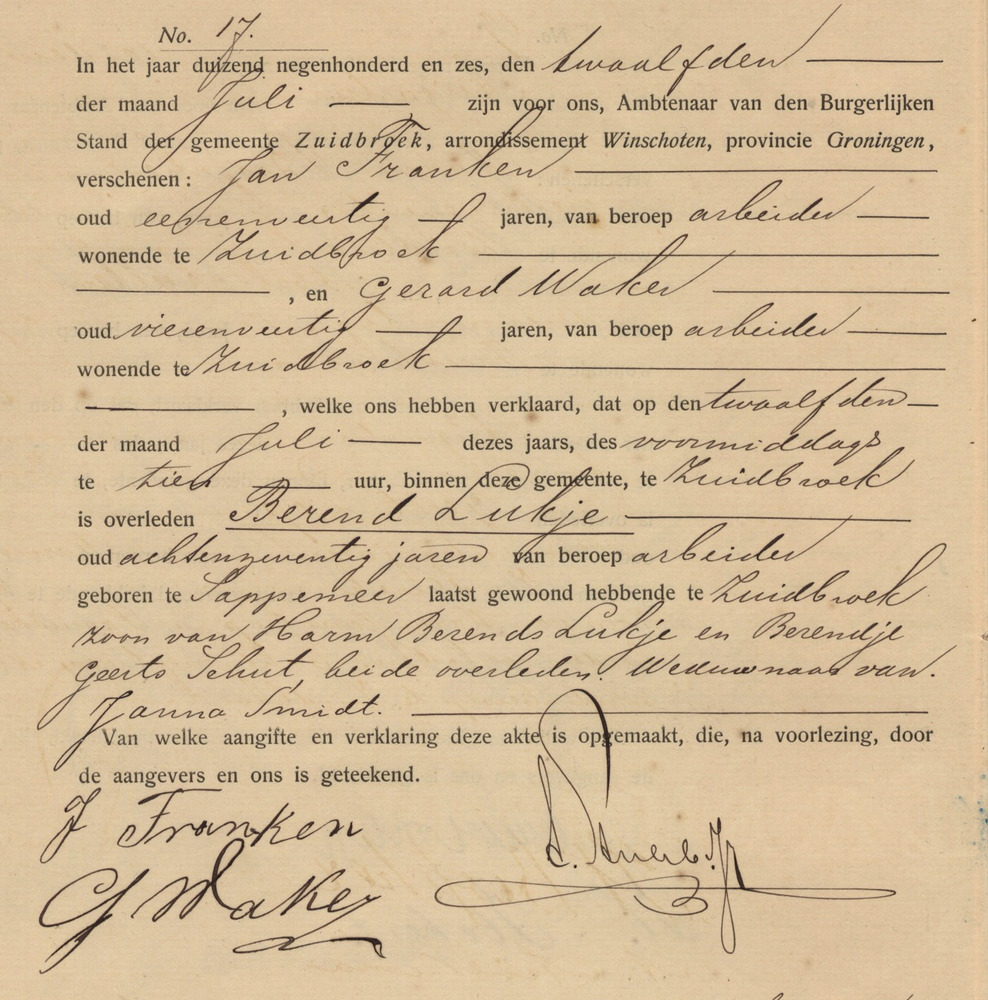 No. 17.
In het jaar duizend negenhonderd en zes, den twaalfden
der maand Juli zijn voor ons, Ambtenaar van den Burgerlijken
Stand der gemeente Zuidbroek, arrondissement Winschoten, provincie Groningen,
verschenen: Jan Franken
oud eenenveertig jaren, van beroep arbeider
wonende te Zuidbroek
, en Gerard Waker
oud vierenveertig jaren, van beroep arbeider
wonende te Zuidbroek
, welke ons hebben verklaard, dat op den twaalfden
der maand Juli dezes jaars, des voormiddags
te tien uur, binnen deze gemeente, te Zuidbroek
is overleden Berend Lukje
oud achtenzeventig jaren van beroep arbeider
geboren te Sappemeer laatst gewoond hebbende te Zuidbroek
zoon van Harm Berends Lukje en Berendje
Geerts Schut, beide overleden. Weduwnaar van.
Janna Smidt.
Van welke aangifte en verklaring deze akte is opgemaakt, die, na voorlezing, door
de aangevers en ons is geteekend.
J Franken
G Waker